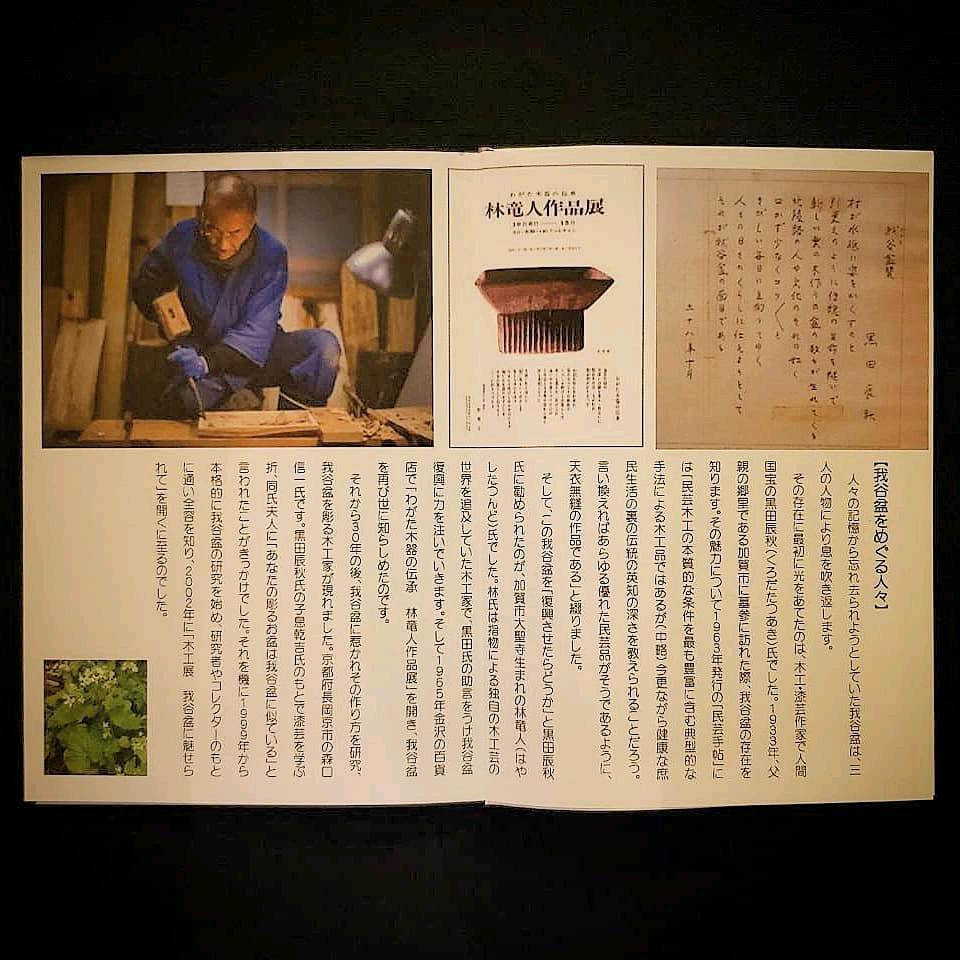 我谷盆讃
黒田辰秋
村が水底に姿をかくすと
新しい栗の木作りの盆の数々が生れてくる
北陸路の人や文化のそれの如く
さびしい毎日に立向ってゆく
それが我谷盆の面目である
三十八年十月
わがた木器の伝承
林竜人作品展
【我谷盆をめぐる人々】
人々の記憶から忘れ去られようとしていた我谷盆は、三
人の人物により息を吹き返します。
その存在に最初に光をあてたのは、木工・漆芸作家で人間
国宝の黒田辰秋(くろだたつあき)氏でした。1933年、父
親の郷里である加賀市に墓参に訪れた際、我谷盆の存在を
知ります。その魅力について1963年発行の「民芸手帖」に
は「民芸木工の本質的な条件を最も豊富に含む典型的な
手法による木工品ではあるが(中略)今更ながら健康な庶
民生活の裏の伝統の英知の深さを教えられることだろう。
言い換えればあらゆる優れた民芸品がそうであるように、
天衣無縫の作品である」と綴りました。
そして、この我谷盆を「復興させたらどうか」と黒田辰秋
氏に勧められたのが、加賀市大聖寺生まれの林竜人(はや
したつんど)氏でした。林氏は指物による独自の木工芸の
世界を追及していた木工家で、黒田氏の助言をうけ我谷盆
復興に力を注いでいきます。そして1965年金沢の百貨
店で「わがた木器の伝承 林竜人作品展」を開き、我谷盆
を再び世に知らしめたのです。
それから30年の後、我谷盆に惹かれその作り方を研究、
我谷盆を彫る木工家が現れました。京都府長岡京市の森口
信一氏です。黒田辰秋氏の子息乾吉氏のもとで漆芸を学ぶ
折、同氏夫人に「あなたの彫るお盆は我谷盆に似ている」と
言われたことがきっかけでした。それを機に1999年から
本格的に我谷盆の研究を始め、研究者やコレクターのもと
に通い全容を知り、2002年に「木工展 我谷盆に魅せら
れて」を開くに至るのでした。